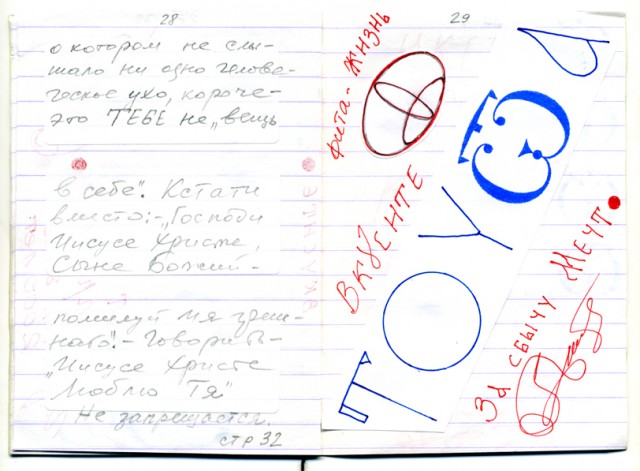 28
о котором не слы-
шало ни одно челове-
ческое ухо, короче-
это ТЕБЕ не „вещь
в себе". Кстати
вместо:-„Господи
Иисусе Христе,
Сыне Божий -
помилуй мя греш-
наго".- Говорить-
„Иисусе Христе
Люблю Тя"
Не запрещается.
стр 32
29
фита - жизнь
ВКУЕНТЕ
За сбычу Мечт